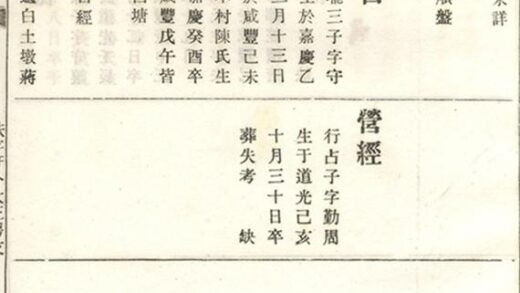 詳
盤
三子字守
於嘉慶乙
月十三日
咸豐己未
村陳氏生
慶癸酉卒
豐戊午皆
塘
經
白土墩蔣
營經
行占子字勤周
生于道光己亥
十月三十日卒
葬失考 缺